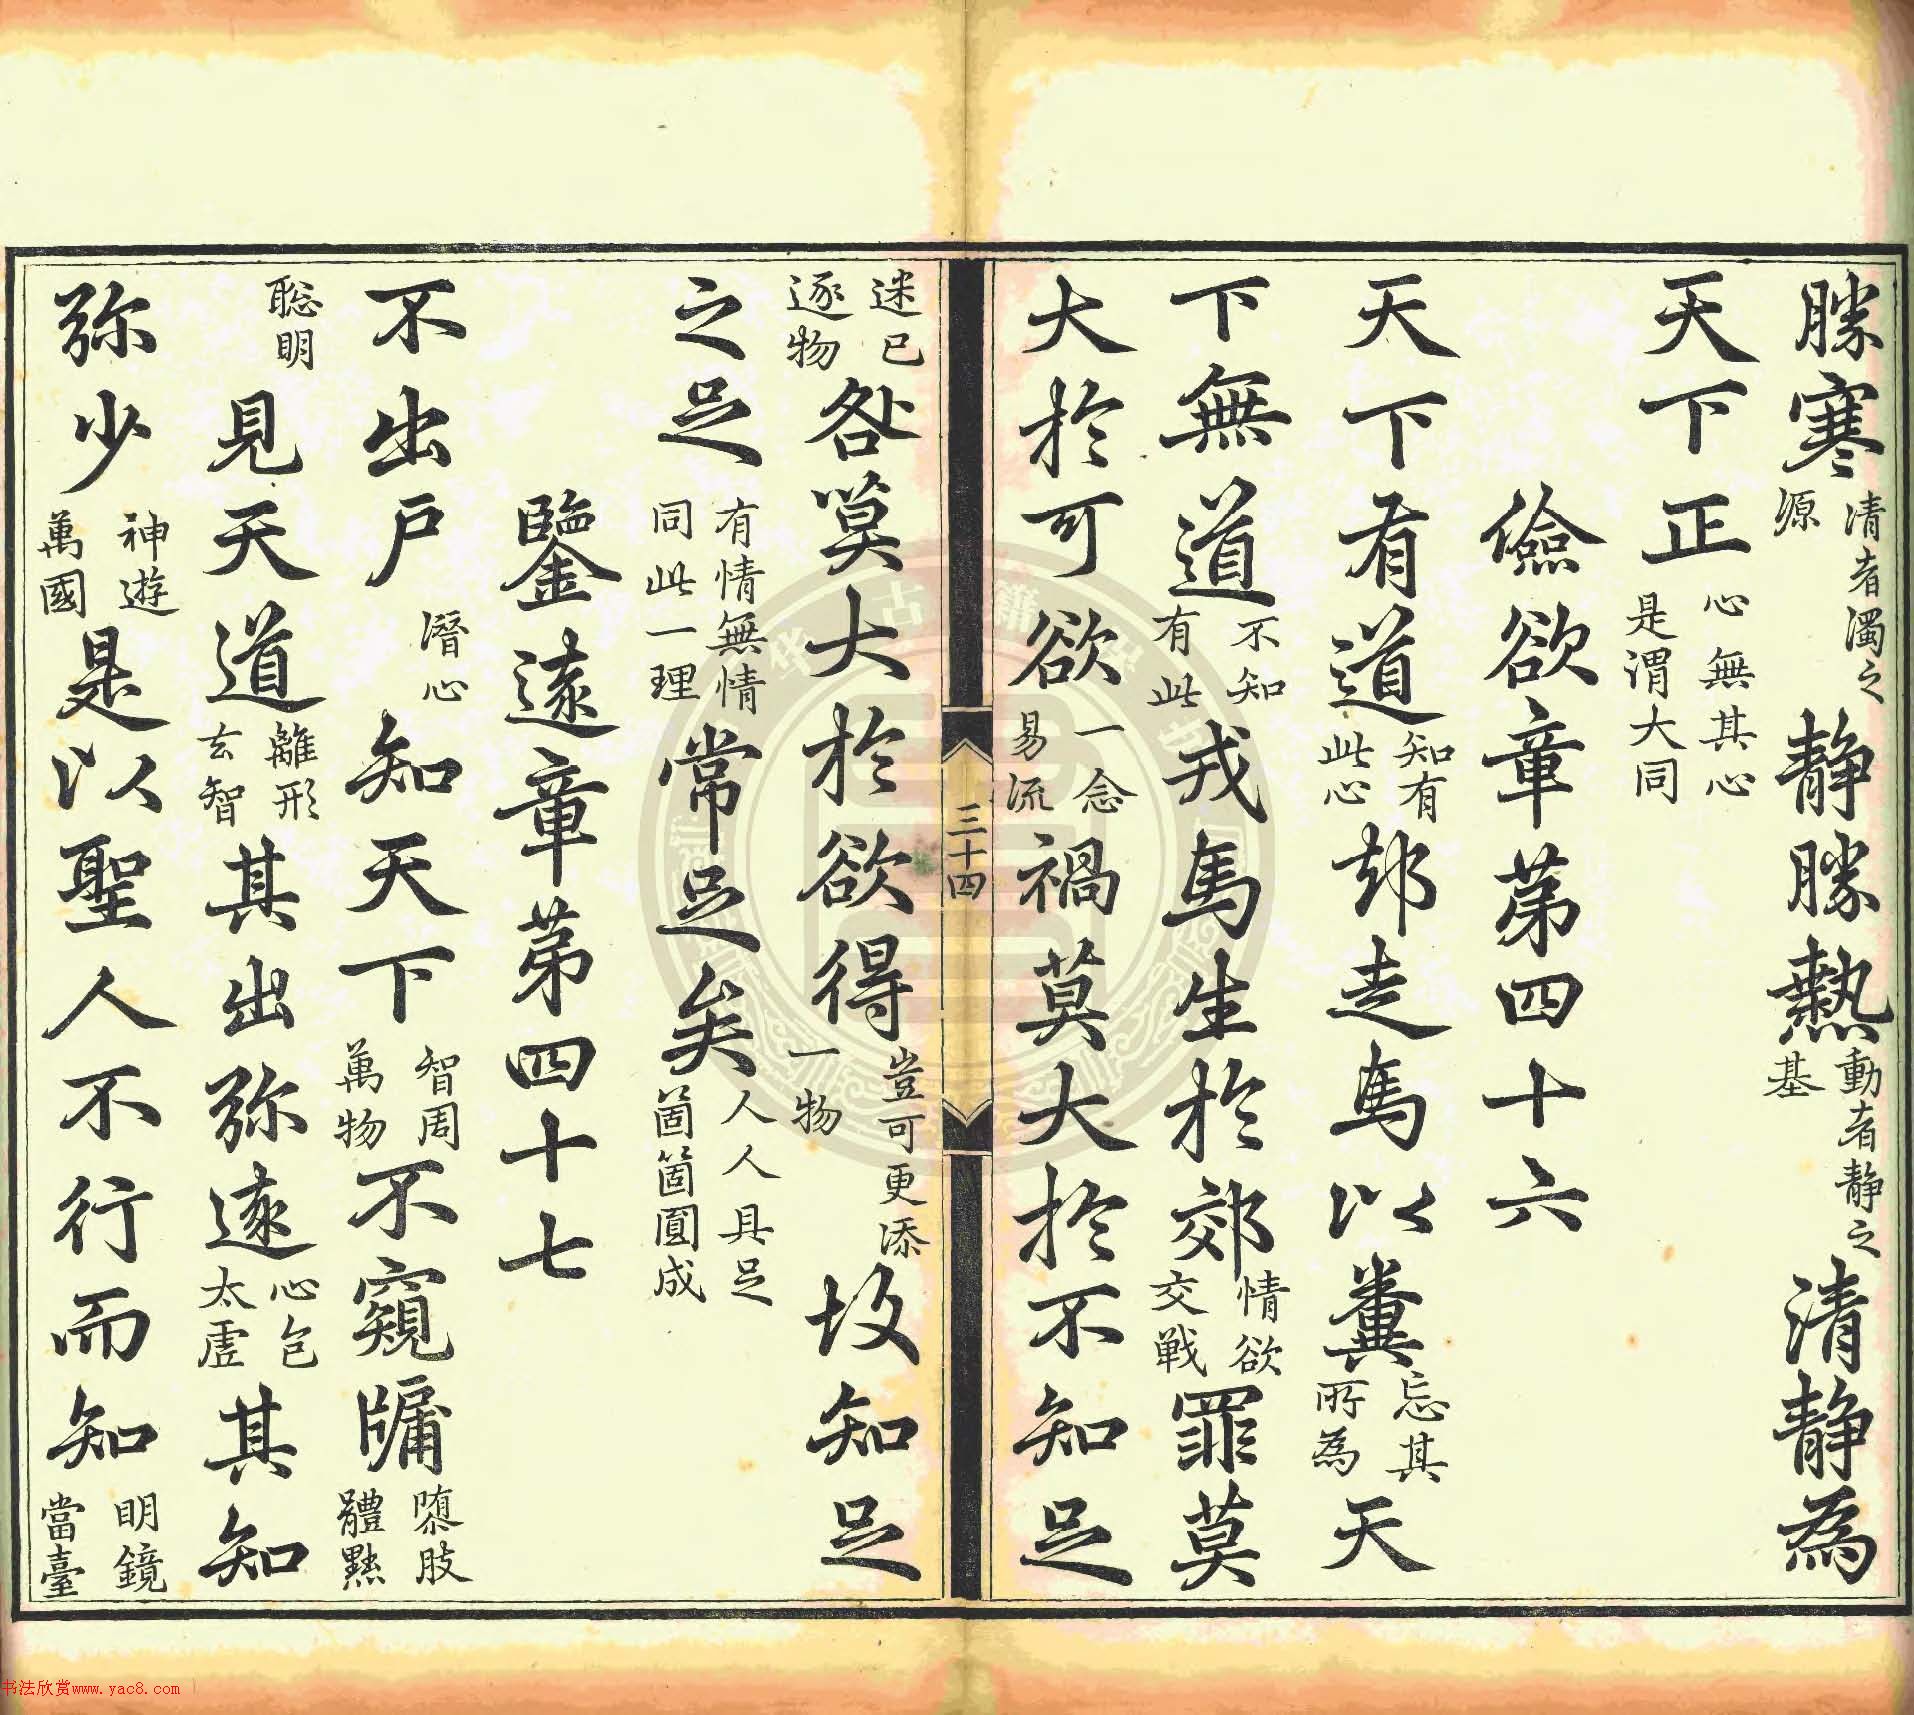 勝寒清者濁之源静勝熱動者静之基清静為
天下正心無其心是謂大同
儉欲章第四十六
天下有道知有此心却走馬以糞忘其所為天
下無道不知有此戎馬生於郊情欲交戰罪莫
大於可欲一念易流禍莫大於不知足
三十四
迷已逐物咎莫大於欲得豈可更添一物故知足
之足有情無情同此一理常足矣人人具足箇箇圓成
鑒遠章第四十七
不出戶潛心知天下智周萬物不窺牖隳肢體黜
聰明見天道離形去智其出弥遠心包太虛其知
弥少神遊萬國是以聖人不行而知明鏡當臺
书法欣赏www.yac8.com